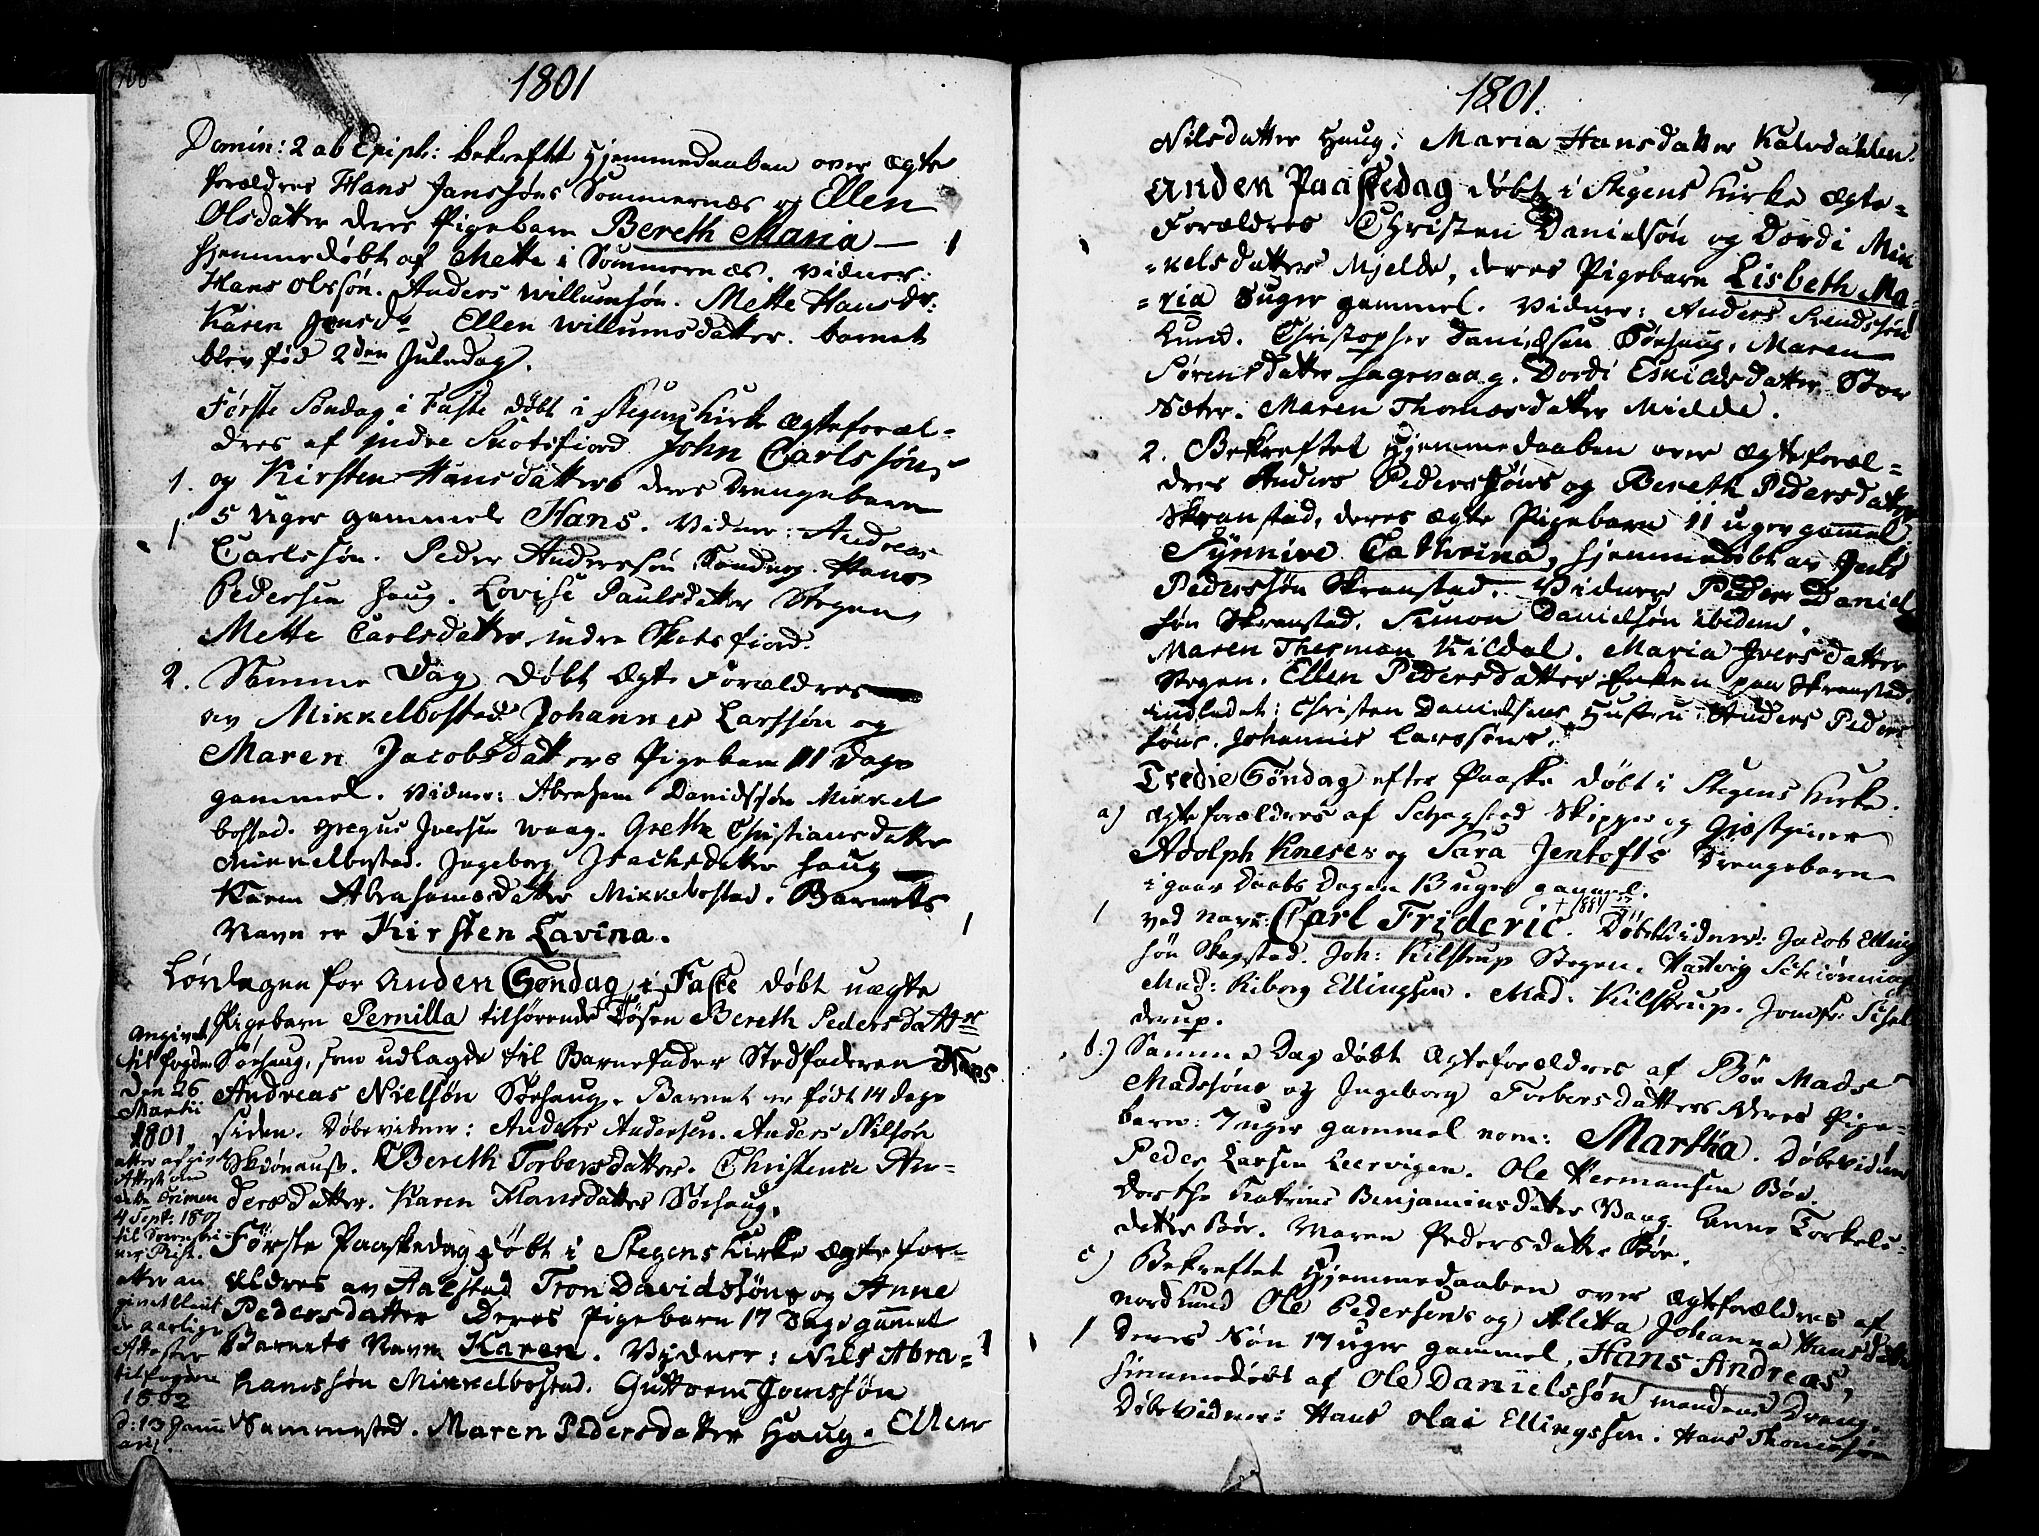 1801
Domin: 2 ab Epiph: bekreftet Hjemmedaaben over Ægte
forældres Hans Janssøns Sommernæs og Ellen
Olsdatter deres Pigebarn Bereth Maria — 1
hjemmedøbt af Mette i Sommernæs. Vidner:
Hans Olssøn. Anders Willumsøn. Mette Hansdr:
Karen Jensdr Ellen Willumsdatter. barnet
blev fød 2den Juledag.
Første Søndag i Faste døbt i Stegens Kirke Ægteforæl-
dres af indre Skotsfiord John Carlssøns
1. og Kirsten Hansdatters deres Drengebarn
1 5 Uger gammel Hans. Vidner: Andreas
Carlssøn. Peder Anderssøn. Hans
Pedersen Haug. Lovise Paulsdatter Stegen
Mette Carlsdatter indre Skotsfiord.
2. Samme Dag døbt Ægte Forældres
av Mikkelbostad Johannes Larssøn og
Maren Jacobsdatters Pigebarn 11 Dage
gammel. Vidner: Abraham Davidssøn Mikkel
bostad. Gregus Iversen Waag. Grethe Christiansdatter
Mikkelbostad. Ingeborg Isachsdatter Haug
Karen Abrahamsdatter Mikkelbostad. Barnets
Navn er Kirsten Lavina. 1
Lørdagen for anden Søndag i Faste døbt uægte
Pigebarn Pernilla tilhørende Tøsen Bereth Pedersdatter
Sørhaug, som udlagde til Barnefader Stedfaderen Hans
Andreas Nielsøn Sørhaug. Barnet er født 14 dage
siden. Døbevidner: Anders Andersen. Anders Nilsøn
Bereth Torbersdatter. Christence An-
dersdatter. Karen Hansdatter Sørhaug.
Angivet
til fogden
den 26
Martii
1801
4 Sept: 1801
1802
d: 13 Janu
arj.
Første Paaskedag døbt i Stegens Kirke Ægte for-
ældres av Aalstad Tron Davidssøns og Anne
Pedersdatter Deres Pigebarn 17 Dage gammel
Barnets Navn Karen. Vidner: Nils Abra- 1
hamssøn Mikkelbostad. Guttorm Jonssøn
Sammestad. Maren Pedersdatter Haug. Ellen
1801.
Nilsdatter Haug. Maria Hansdatter Kalvdahlen.
Anden Paaskedag døbt i Stegens Kirke Ægte-
Forældres Christen Danielsøn og Dordi Mik
kelsdatters Mielde, deres Pigebarn Lisbeth Ma-
ria uger gammel. Vidner: Anders Svendssøn
Lund. Christopher Danielsen Sørhaug. Maren
Sørensdatter Hagevaag. Dordi Eskildsdatter Stor
Sæter. Maren Thomasdatter Mielde.
2. Bekreftet Hjemmedaaben over Ægteforæl-
dres Anders Pederssøns og Bereth Pedersdatter
Skranstad, deres ægte Pigebarn 11 uger gammel
Synnive Cathrina, hjemmedøbt av Jens
Pederssøn Skranstad. Vidner Peder Daniel
søn Skranstad. Simon Danielsøn ibidem.
Maren Therman Kildal. Maria Iversdatter
Stegen. Ellen Pedersdatter Enken paa Skranstad.
indledet: Christen Danielsens Hustru, Anders Peders
søns. Johannis Larssøns.
Tredie Søndag efter Paaske døbt i Stegens Kirke.
a) Ægteforældres af Skagstad Skipper og Giæstgiver
Adolph Kneses og Sara Jentofts Drengebarn
i gaar Daabs Dagen 13 uger gammel.
1 ved navn: Carl Frideric. Døbevidner: Jacob Elling
søn Skagstad. Joh: Kilstrup Stegen. Hartvig
Mad: Riborg Ellingsen. Mad: Kilstrup. Jomfr:
derup.
b.) Samme Dag døbt Ægteforældres af Bøe Mads
Madssøns og Ingeborg Torbersdatters Deres Pige-
barn: 7 uger gammel nom: Martha. Døbevidner
Peder Larsen Leervigen. Ole Hermansen Bøe.
Dorthe Katrine Benjaminsdatter Vaag. Anne Torkels-
datter Bøe. Maren Pedersdatter Bøe.
c) Bekreftet Hjemmedaaben over Ægteforældres af
Nordlund Ole Pedersens og Aletta Johanna Hansdatter
1 Deres Søn 17 uger gammel, Hans Andreas,
hjemmedøbt af Ole Danielssøn mandens Dreng.
Døbevidner: Hans Olai Ellingssen. Hans Thomessøn